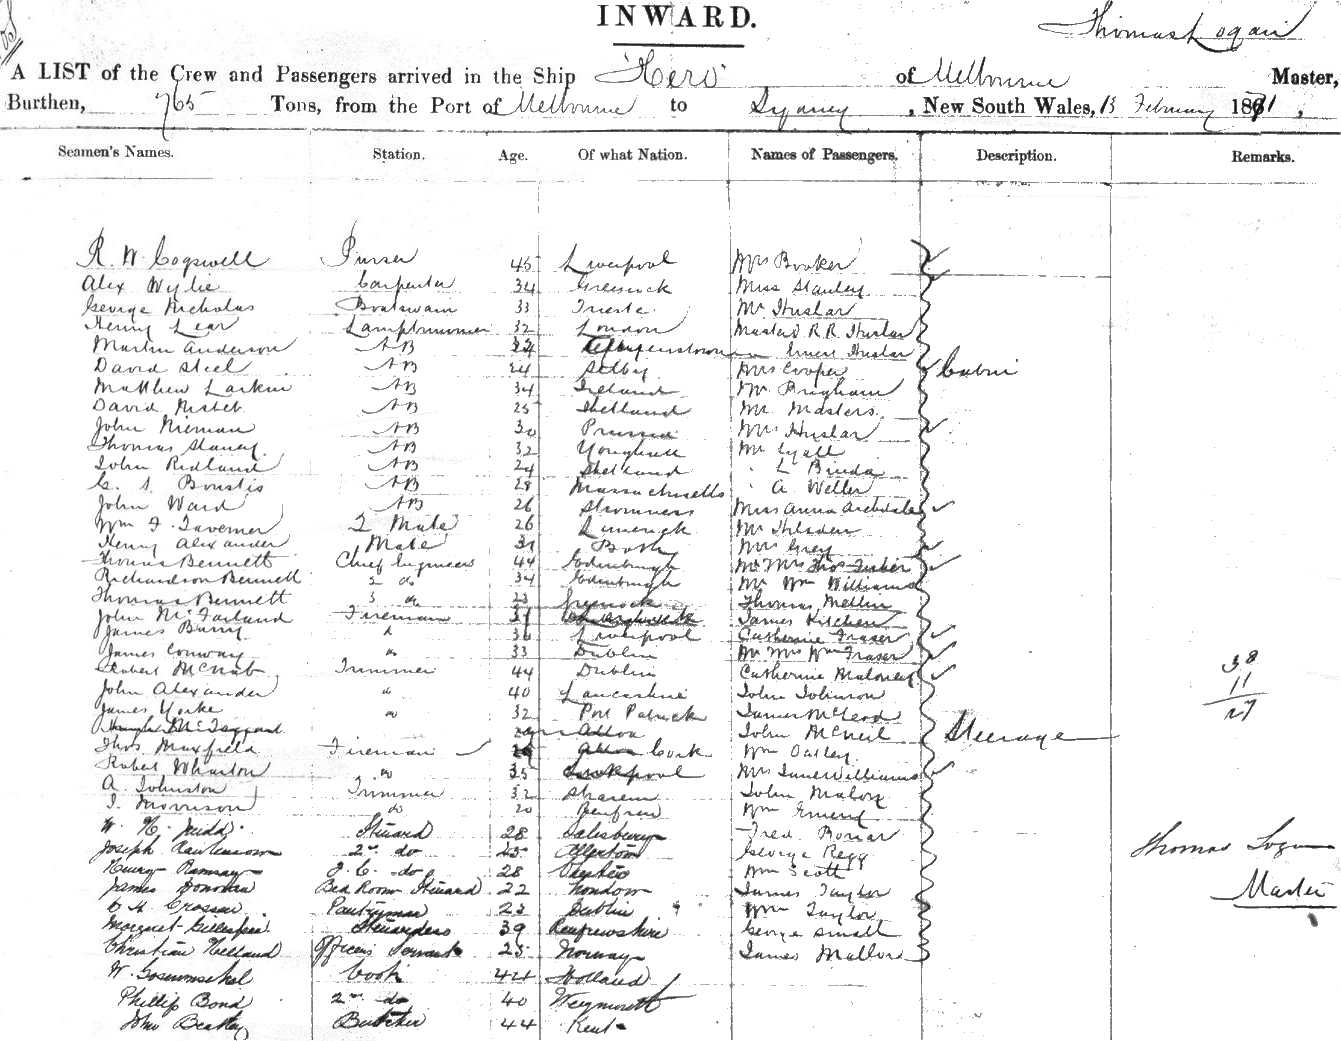 INWARD.
Thomas Logan
A LIST of the Crew and Passengers arrived in the Ship Hero of Melbourne Master,
Burthen, 765 Tons, from the Port of Melbourne to Sydney, New South Wales, 13 February 1871,
Seamen's Names. Station. Age. Of what Nation. Names of Passengers. Description. Remarks.
R. W. Cogswell Purser 45 Liverpool Mrs Booker
Alex Wylie Carpenter 34 Greenock Miss Stanley
George Nicholas Boatswain 33 Trieste Mr Huslar
Henry Lear Lamptrimmer 32 London Master R. R. Huslar
Martin Anderson AB Ernest Huslar
David Steel AB 24 Selby Mrs Cooper Cabin
Matthew Larkin AB 34 Ireland Mr Brigham
David Nisbet AB 25 Shetland Mr Masters
John Nieman AB 30 Prussia Mrs Huslar
Thomas Stacey AB 32 Youghall Mr Lyell
John Redland AB 24 Shetland L Binda
G. S. AB 28 Massachusetts A Weller
John Ward AB 26 Stromness Miss Anna Archdale
Wm F. Taverner 2 Mate 26 Limerick Mr
Henry Alexander Mate 31 Mrs Grey
Thomas Bennett Chief Engineer 44 Edinburgh Mr Mrs Thos Fisher
Richardson Bennett 2 do 34 Edinburgh Mr Wm Williams
Thomas Bennett 3 do 23 Greenock Thomas Mellin
John McFarland Fireman 31 James Kitchen
James Barry 36 Liverpool Catherine Fraser
James Conway do 33 Dublin Mr Mrs Wm Fraser
Robert McNab Trimmer 44 Dublin Catherine Maloney 38
John Alexander 40 Lancashire John Johnson 11
James Yorke do 32 Port Patrick James McLeod 27
Hugh McTaggart Alloa John McNeil Steerage
Thos Maxfield Fireman Cork Wm Oatley
Robert Wharton do 35 Mrs Jane Williams
A. Johnston Trimmer 32 John Malon
J. Morrison do 20 Renfrew Wm Emery
W. H. Judd Steward 28 Salisbury Fred Bonar
Joseph 2nd do 25 Allerton George Regg Thomas Logan
Henry Ramsay F. C. do 28 Wm Scott
James Donovan Bed Room Steward 22 London James Taylor Master
Crossan Pantryman 23 Dublin Wm Taylor
Margaret Gillespie Stewardess 39 Renfrewshire George Small
Christian Helland Officers Servant 25 Norway James Mallon
W. Cook 44 Holland
Phillip Bond 2nd do 40 Weymouth
John Beatley Butcher 44 Kent